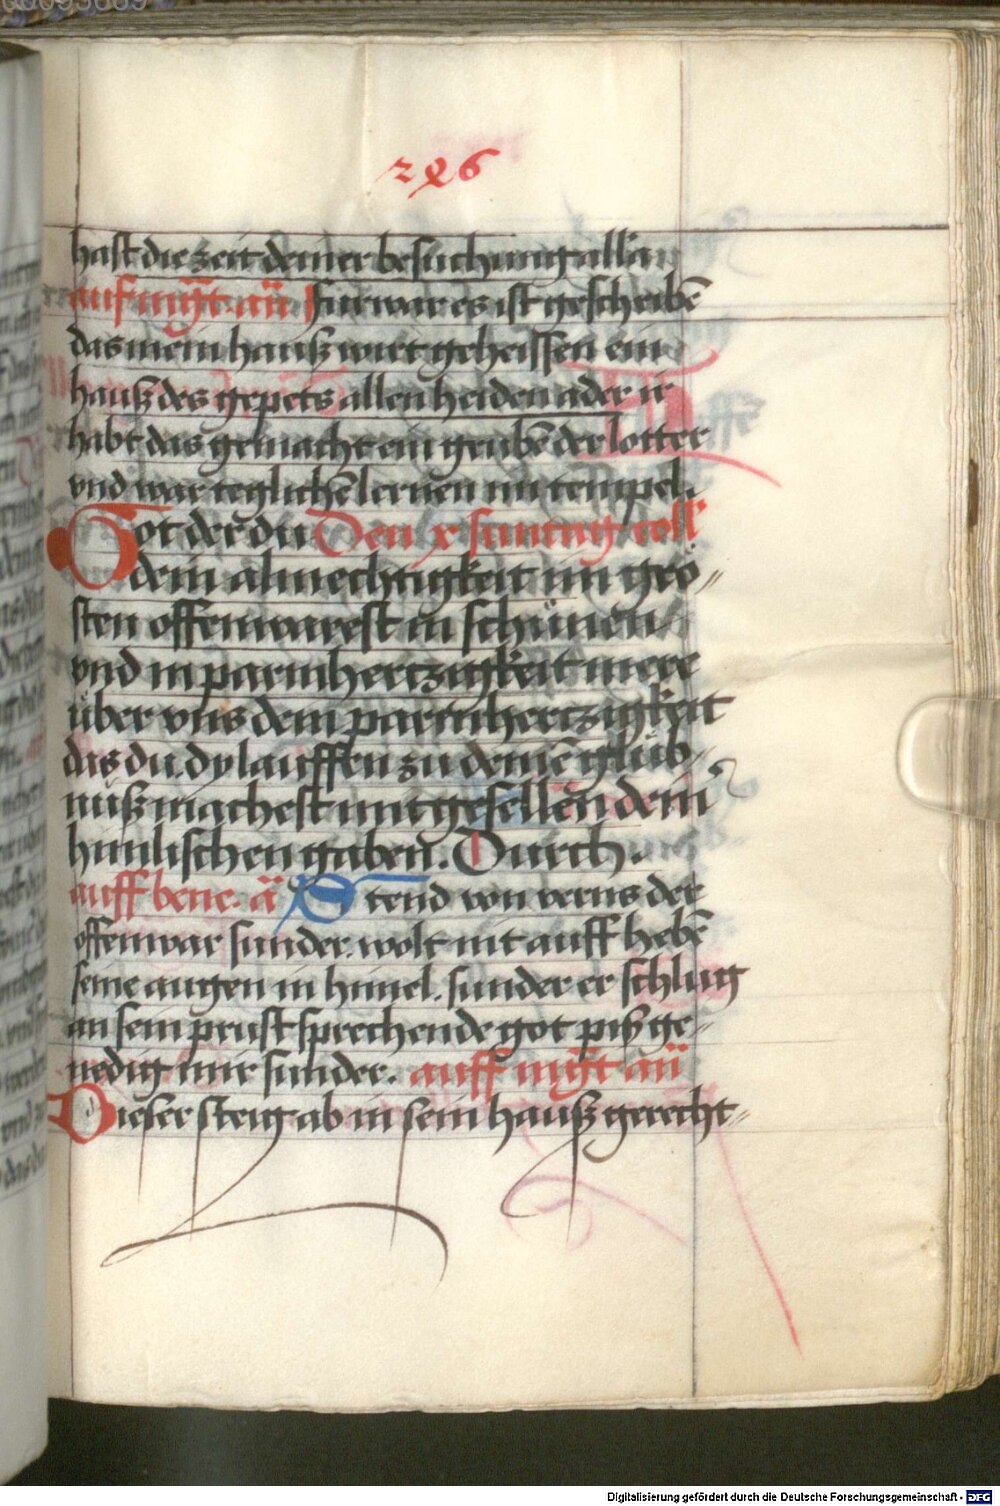 286
hast die zeit deiner besuchung alla᷑
auf mg̃t. añ Furwar es ist geschribē
das mein hauß wirt geheissen ein
hauß des gepets allen heiden ader ir
habt das gemacht ein grubē der lotter
vnd war teglichē lernen im tempel.
Got der du Den x suntag coll
dein almechtigkeit im grö⸗
sten offenwarest in schünen
vnd in parmhertzigkeit mere
über vns dein parmhertzigkeit
das du dy lauffen zu deinē glüb⸗
nüß machest mitgesellen dein̄
himlischen gaben. Durch.
auff bene. ā Stend von verns der
offenwar sunder. wolt nit auff hebē
seine augen in himel. sunder er schlug
an sein prust sprechende got piß ge⸗
nedig mir sunder. auff mg̃t añ
Dieser steig ab in sein hauß gerecht⸗
Digitalisierung gefördert durch die Deutsche Forschungsgemeinschaft - DFG